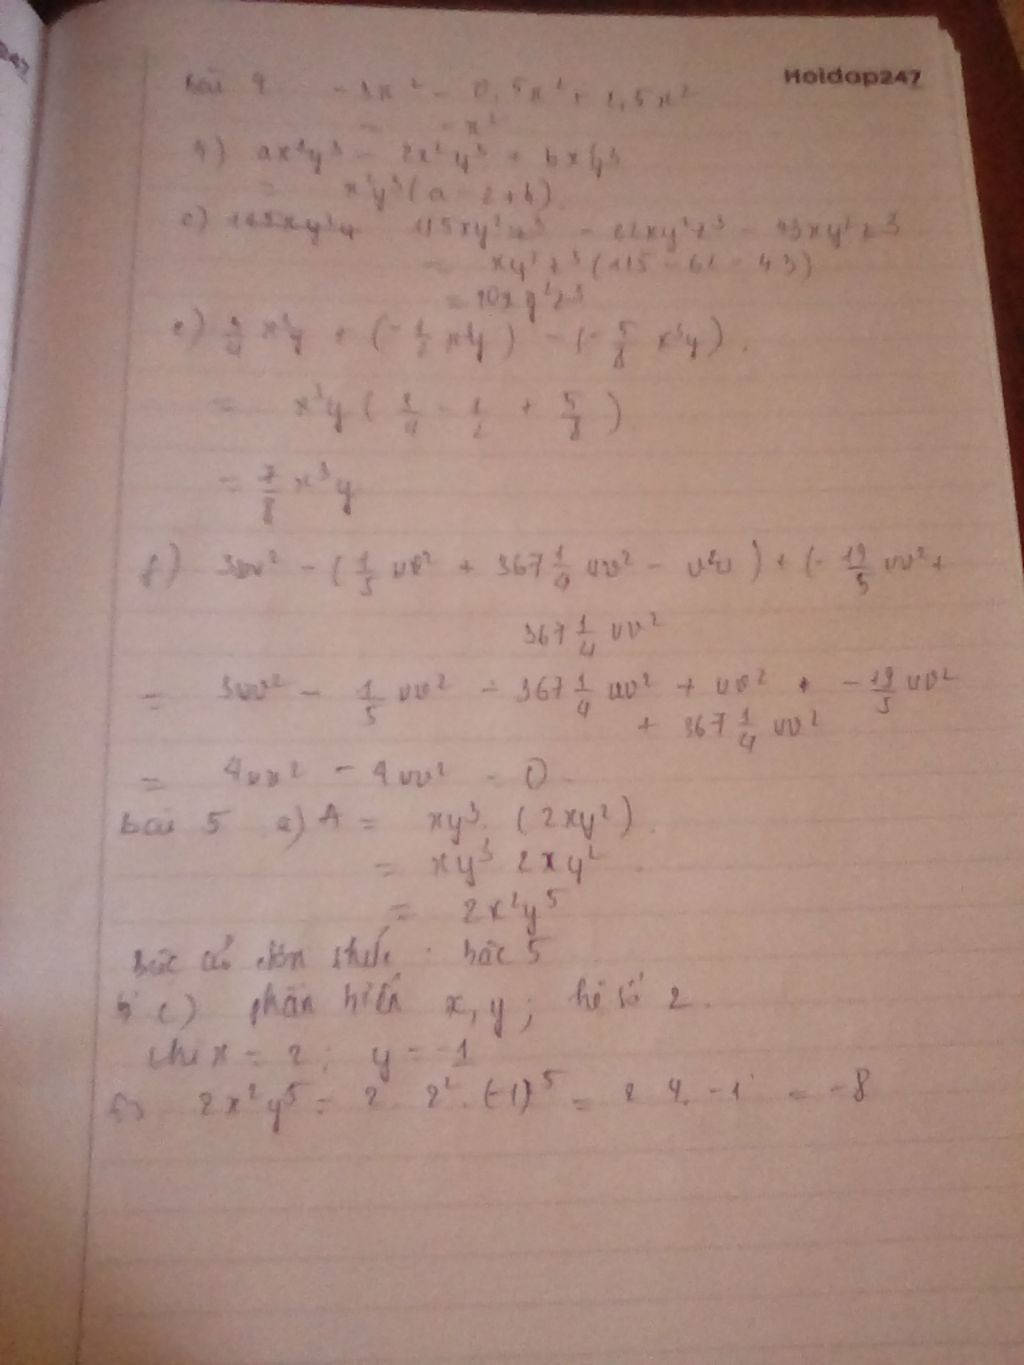 Hoidap247
bài 4 - 3x² - 0,5x² + 2,5x²
= - x²
b) ax²y³ - 2x²y³ + bx²y³
= x²y³(a - 2 + b)
c) 115xy²z³ - 62xy²z³ - 43xy²z³
= xy²z³(115 - 62 - 43)
= 10xy²z³
e) 3/4 x³y + (-1/2 x³y) - (-5/8 x³y).
= x³y(3/4 - 1/2 + 5/8)
= 7/8 x³y
f) 3uv² - (1/5 uv² + 367 1/4 uv² - uv²) + (-19/5 uv² +
367 1/4 uv²
= 3uv² - 1/5 uv² - 367 1/4 uv² + uv² + -19/5 uv²
+ 367 1/4 uv²
= 4uv² - 4uv² = 0
bài 5 a) A = xy³. (2xy²).
= xy³ 2xy².
= 2x²y⁵
bậc đơn thức: bậc 5
c) phần biến x, y; hệ số 2.
x = 2; y = -1
2x²y⁵ = 2 2². (-1)⁵ = 2 4. -1 = -8